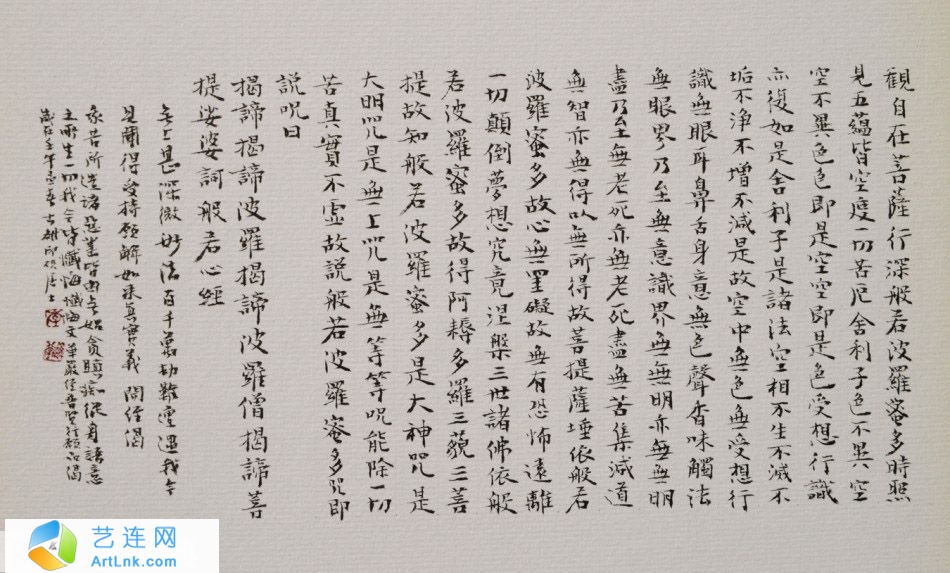 観自在菩薩行深般若波羅蜜多時照
見五蘊皆空度一切苦厄舍利子色不異空
空不異色色即是空空即是色受想行識
亦復如是舍利子是諸法空相不生不滅不
垢不淨不增不減是故空中無色無受想行
識無眼耳鼻舌身意無色聲香味觸法
無眼界乃至無意識界無無明亦無無明
盡乃至無老死亦無老死盡無苦集滅道
無智亦無得以無所得故菩提薩埵依般若
波羅蜜多故心無罣礙故無有恐怖遠離
一切顛倒夢想究竟涅槃三世諸佛依般
若波羅蜜多故得阿耨多羅三藐三菩
提故知般若波羅蜜多是大神咒是
大明咒是無上咒是無等等咒能除一切
苦真實不虛故說般若波羅蜜多咒即
說咒曰
揭諦揭諦波羅揭諦波羅僧揭諦菩
提娑婆訶般若心經
無上甚深微妙法百千萬劫難遭遇我今
見聞得受持願解如来真實義 開經偈
我昔所造諸惡業皆由無始貪瞋痴從身語意
之所生一切我今皆懺悔 懺悔文 華嚴經普賢行願品偈
歲在壬午
艺连网
ArtLnk.com